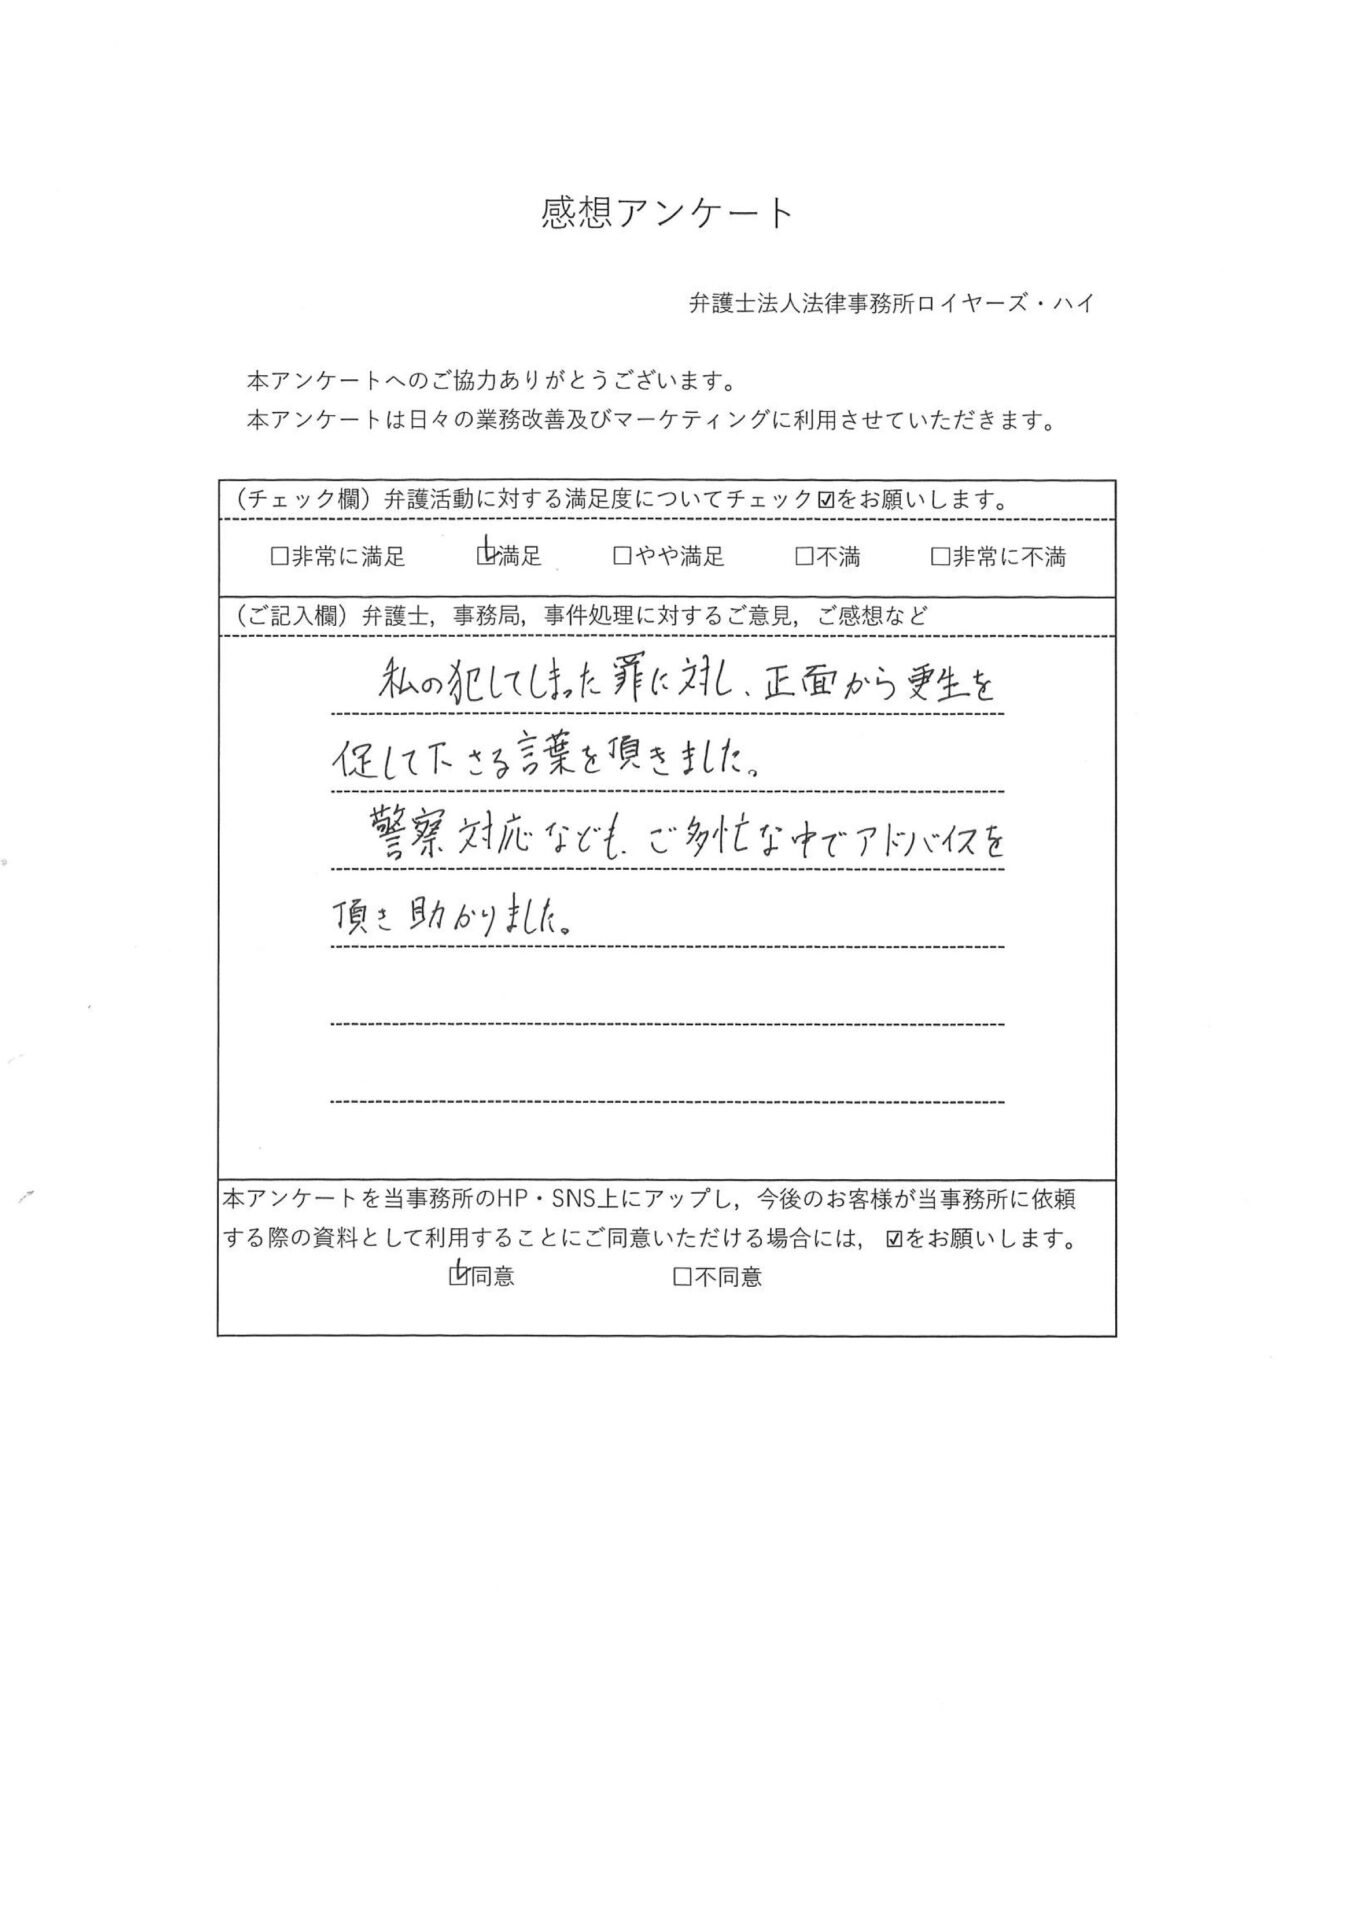 感想アンケート
弁護士法人法律事務所ロイヤーズ・ハイ
本アンケートへのご協力ありがとうございます。
本アンケートは日々の業務改善及びマーケティングに利用させていただきます。
（チェック欄）弁護活動に対する満足度についてチェック☑をお願いします。
□非常に満足 ☑満足 □やや満足 □不満 □非常に不満
（ご記入欄）弁護士，事務局，事件処理に対するご意見，ご感想など
私の犯してしまった罪に対し、正面から更生を
促して下さる言葉を頂きました。
警察対応なども、ご多忙な中でアドバイスを
頂き助かりました。
本アンケートを当事務所のHP・SNS上にアップし，今後のお客様が当事務所に依頼
する際の資料として利用することにご同意いただける場合には，☑をお願いします。
☑同意 □不同意